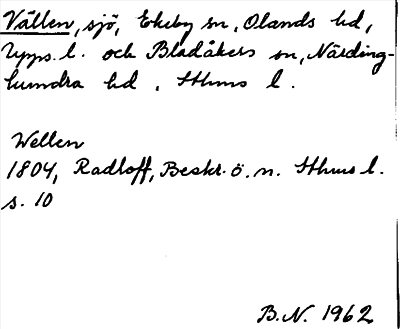 Vällen, sjö, Ekeby sn, Olands hd,
Upps. l. och Bladåkers sn, Närding-
hundra hd, Sthms l.
Wellen
1804, Radloff, Beskr. ö. n. Sthms l.
s. 10
B.N. 1962